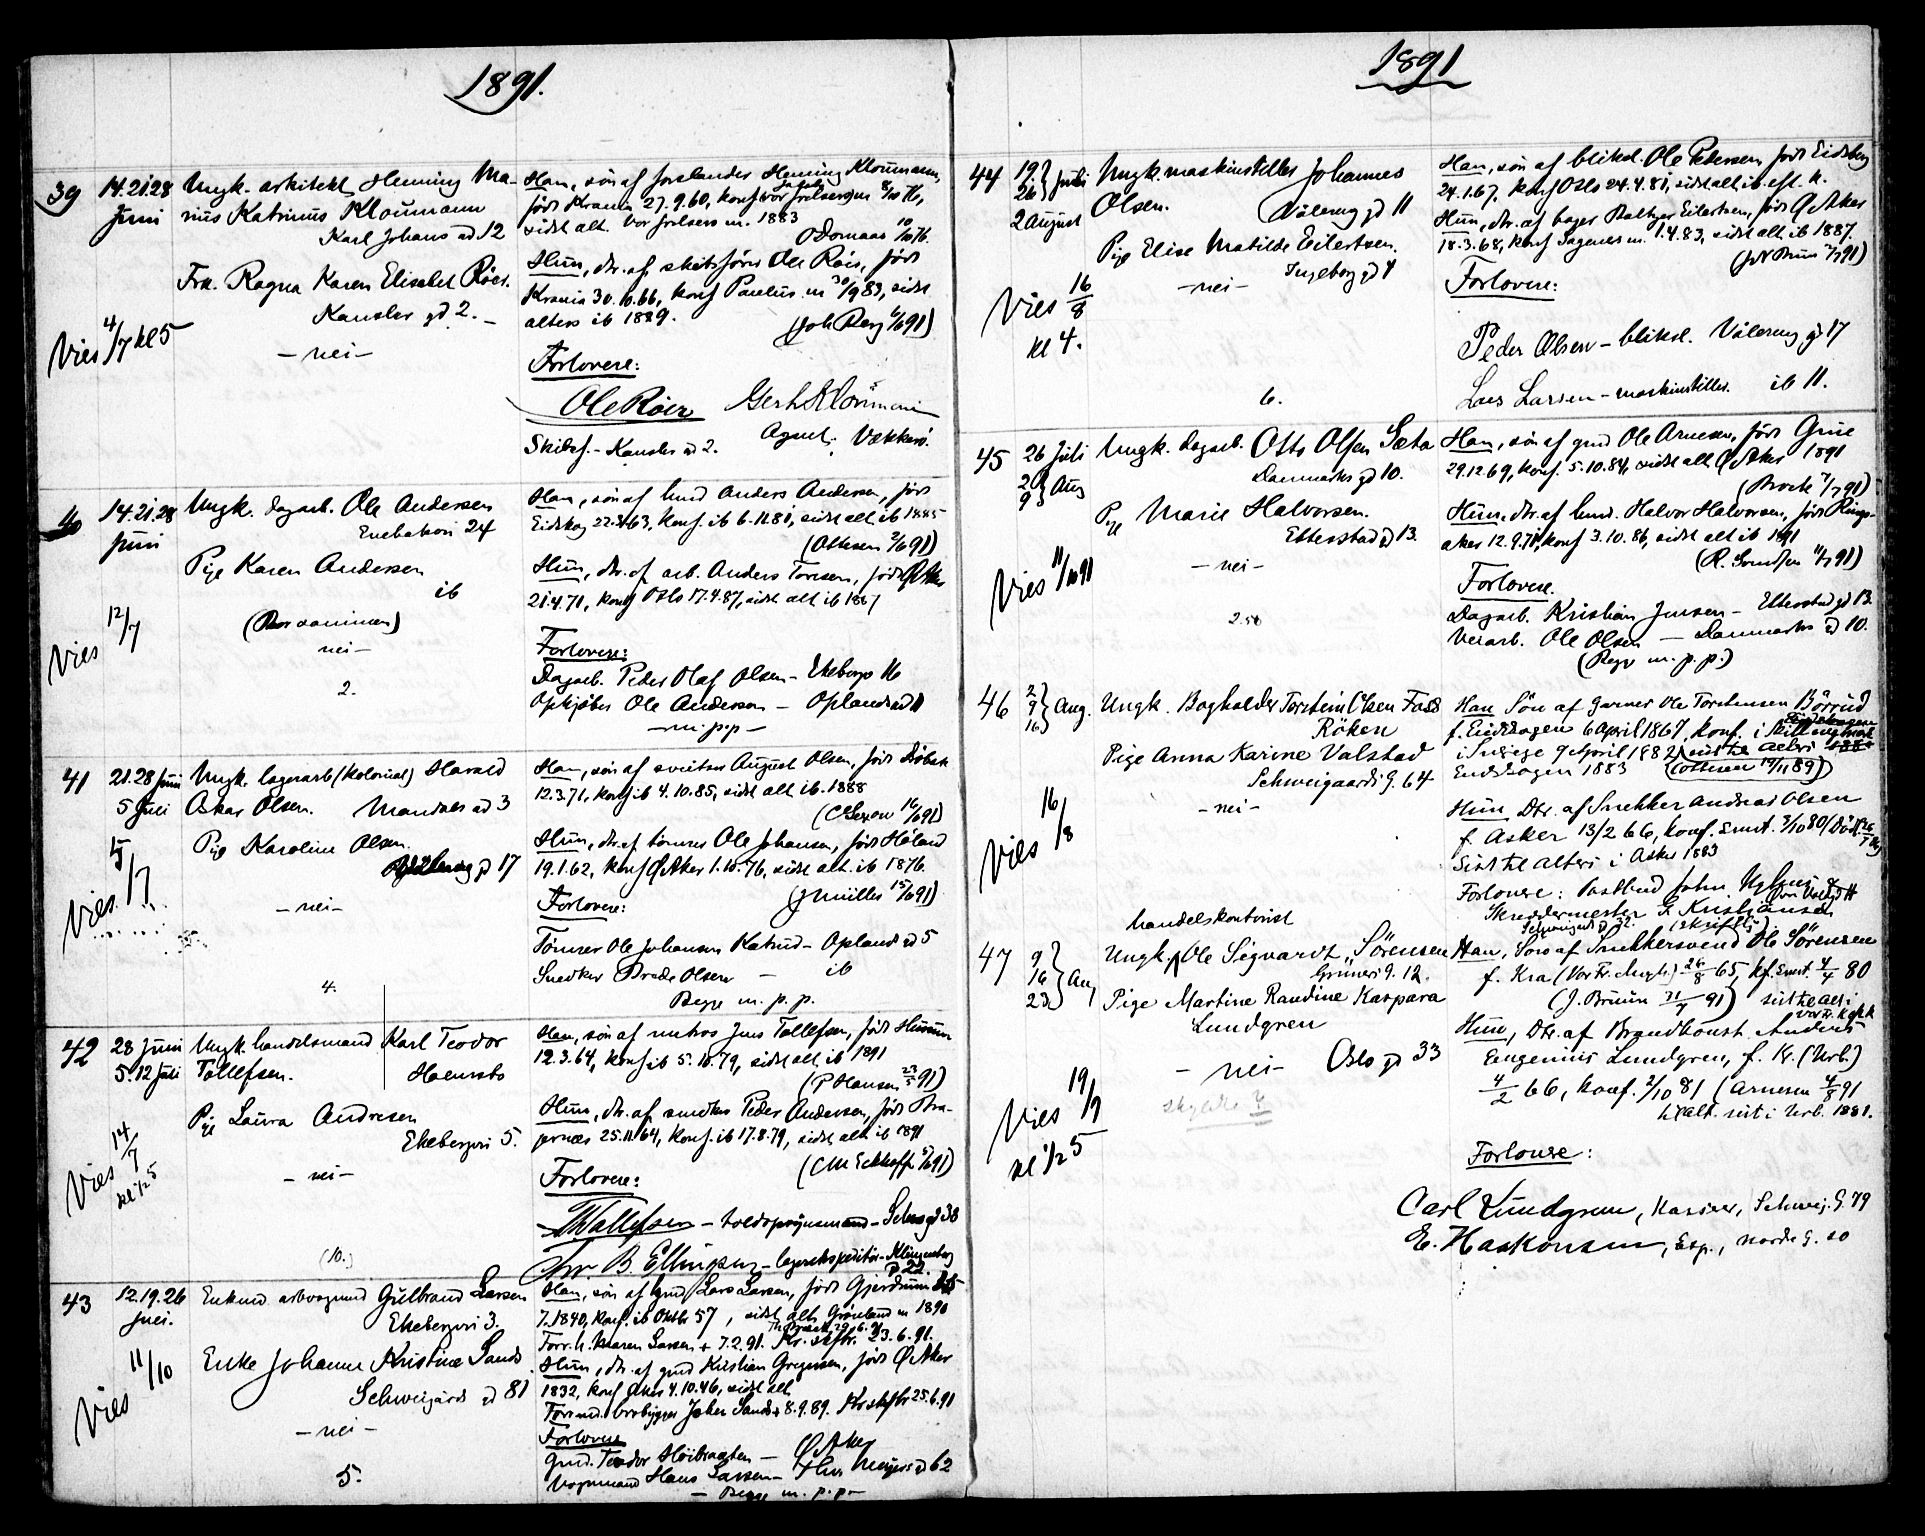 1891.
39
14.21.28
Juni
Ungk. arkitekt Henning Ma-
rius Katrinus Kloumann
Karl Johans gd 12
Frk. Ragna Karen Elisabet Röer.
Kansler gd 2.
Vies 4/7 kl 5
- nei -
Han, sön af Henning Kloumann,
födt Krania 27.9.60, konf Vor Frelsers
sidst alt. Vor Frelsers m. 1883
Hun, dtr. af skibsförer Ole Röer, födt
Krania 30. 10. 66, konf Paulus m 30/9 83, sidst
alters ib 1889.
(Joh Berg 91)
Forlovere:
Ole Röer Gerh Kloumann
Skibsf. - Kansler gd 2. Agent: Vækkerö.
40
14.21.28
Juni
Ungk. dagarb. Ole Andersen
Enebakvei 24
Pige Karen Andersen
ib
(Bor sammen)
nei -
Vies 12/7
2.
Han, sön af hmd Anders Andersen, födt
Eidskog 22. 63, konf. ib 6.11.81, sidst alt ib 1885
(Ottesen 2/6 91)
Hun, dtr. af arb. Anders Torssen, födt Ø Aker
21.4.71, konf Oslo 17.4.87, sidst alt ib 1887
Forlovere:
Dagarb. Peder Olaf Olsen - Ekebergv 16
Opkjöber Ole Andersen - Oplands gd 11
- m.p.p -
41
21.28 Juni
5 Juli
Ungk. lagerarb (kolonial) Harald
Oskar Olsen. Mandals gd 3
Pige Karoline Olsen.
gd 17
Vies 5/7
- nei -
4.
Han, sön af sveitser August Olsen, födt Dröbak
12.3.71, konf ib 4.10.85, sidst alt ib. 1888
Hun, dtr. af tömrer Ole Johansen, födt Höland
19.1.62, konf Ø Aker 1.10.76, sidst alt. ib 1876.
Forlovere:
(J Müller 15/6 91)
Tömrer Ole Johansen Katrud - Oplands gd 5
Snedker Brede Olsen - ib
Begge m. p. p.
42
28 Juni
5.12 Juli
Ungk. handelsmand Karl Teodor
Tollefsen. Hornsbo
Pige Laura Andresen
Ekebergvei 5.
Vies 14/7
kl 1/2 5
- nei -
(10.)
Han, sön af matros Jens Tollefsen, födt Hurum
12.3.64, konf ib 5.10.79, sidst alt. ib 1891
(P Hansen 23/5 91)
Hun, dtr. af snedker Peder Andersen, födt Tra-
gernæs 25.11.64, konf. ib 17.8.79, sidst alt ib 1891
(CM Eckhoff 91)
Forlovere:
Tollefsen - toldopsynsmand - Schous gd 38
Chr. B. Ellingsen - lagerekspeditör - Klingenberg
gd 22.
43
12.19.26
Juli.
Enkmd arbvognmd Gulbrand Larsen
Ekebergvei 3.
Enke Johanne Kristine Sands
Schweigårds gd 81
Vies 11/10
- nei -
5.
Han, sön af gmd Lars Larsen, födt Gjerdrum
7. 1840, konf. ib Oktbr 57, sidst alt. Grönland m 1890
Forr. h. Maren Larsen + 7.2.91. Kr. skfbr. 23.6.91.
Hun, dtr. af gmd Kristian Gregersen, födt Ø Aker
1832, konf Aker 4.10.46, sidst alt
Forr md. brobygger Joker Sands + 8.9.89. Kr skfbr 25.6.91
Forlovere
Gmd. Teodor Höibraaten - Ø Aker
Vognmand Hans Larsen - Thv Meyers gd 62
- Begge m. p. p -
1891
44
19.
26 } Juli
2 August
Ungk. maskinstiller Johannes
Olsen. Våleng gd 11
Pige Elise Matilde Eilertsen.
Ingeborg gd 4
- nei -
Vies 16/8
kl 4.
6.
Han, sön af bliksl. Ole Petersen, födt Eidsberg
24.1.67, konf Oslo 24.4.81, sidst alt ib eft. k.
Hun, dtr. af bager Baltzer Eilertsen, födt Ø Aker
18.3.68, konf Sagenes m. 1.4.83, sidst alt ib 1887.
Forlovere:
Peder Olsen - bliksl. Våleng gd 17
Lars Larsen - maskinstiller. ib 11.
45
26 Juli
2
9 } Aug
Ungk. dagarb. Otto Olsen Sæta
Danmarks gd 10.
Pige Marie Halvorsen.
Etterstad gd 13.
- nei -
Vies 11/10 91
2.50
Han, sön af gmd Ole Arnesen, födt Grue
29.12.69, konf. 5.10.84, sidst alt Ø Aker 1891
(Brock 7/7 91)
Hun, dtr. af hmd. Halvor Halvorsen, födt Rings-
aker 12.9.71, konf 3.10.86, sidst alt ib 1891
Forlovere.
Dagarb. Kristian Jensen - Etterstad gd 13.
Verarb. Ole Olsen - Danmarks gd 10.
(Begge m. p. p.)
46
2
9 } Aug.
16
Ungk. Bogholder Torstein Olsen Foss
Röken
Pige Anna Karine Valstad
Schweigaards G. 64
- nei -
Vies 16/8
Han Sön af Garver Ole Torstensen Börrud
f. Eidskogen 6 April 1867, konf. i Skillingmark
i Sverige 9 April 1882, sidst til alters
Eidskogen 1883 (Ottesen 89)
Hun Dtr. af Snekker Andreas Olsen
f. Asker 13/2 66, konf. smst. 3/10 80
Sidst til alters i Asker 1883
Forlovere: Postbud John
Skreddermester G Kristiansen
(skriftlig)
47
9
16 } Aug
23
handelskontorist
Ungk. Ole Sigvardt Sörensen
Grüners G. 12.
Pige Martine Randine Kaspara
Lundgren
- nei - Oslo gd 33
Vies 19/9
kl 1/2 5
Han, Sön af Snekkersvend Ole Sörensen
f. Kra (Vor Fr. Mngh.) 26/8 65, kf. smst. 4/4 80
(J. Bruun 31/7 91) sidst til alt. i
Hun, Dtr. af Brandkonst. Anders
Eugenius Lundgren, f. Kr. (Urb.)
4/2 66, konf. 2/10 81 (Arnesen 4/8 91
til alt. sidst i Urb. 1881.
Forlovere:
Carl Lundgren, Kasserer, Schweig. G. 79
E. Haakonsen, Exp., Nordre G. 20